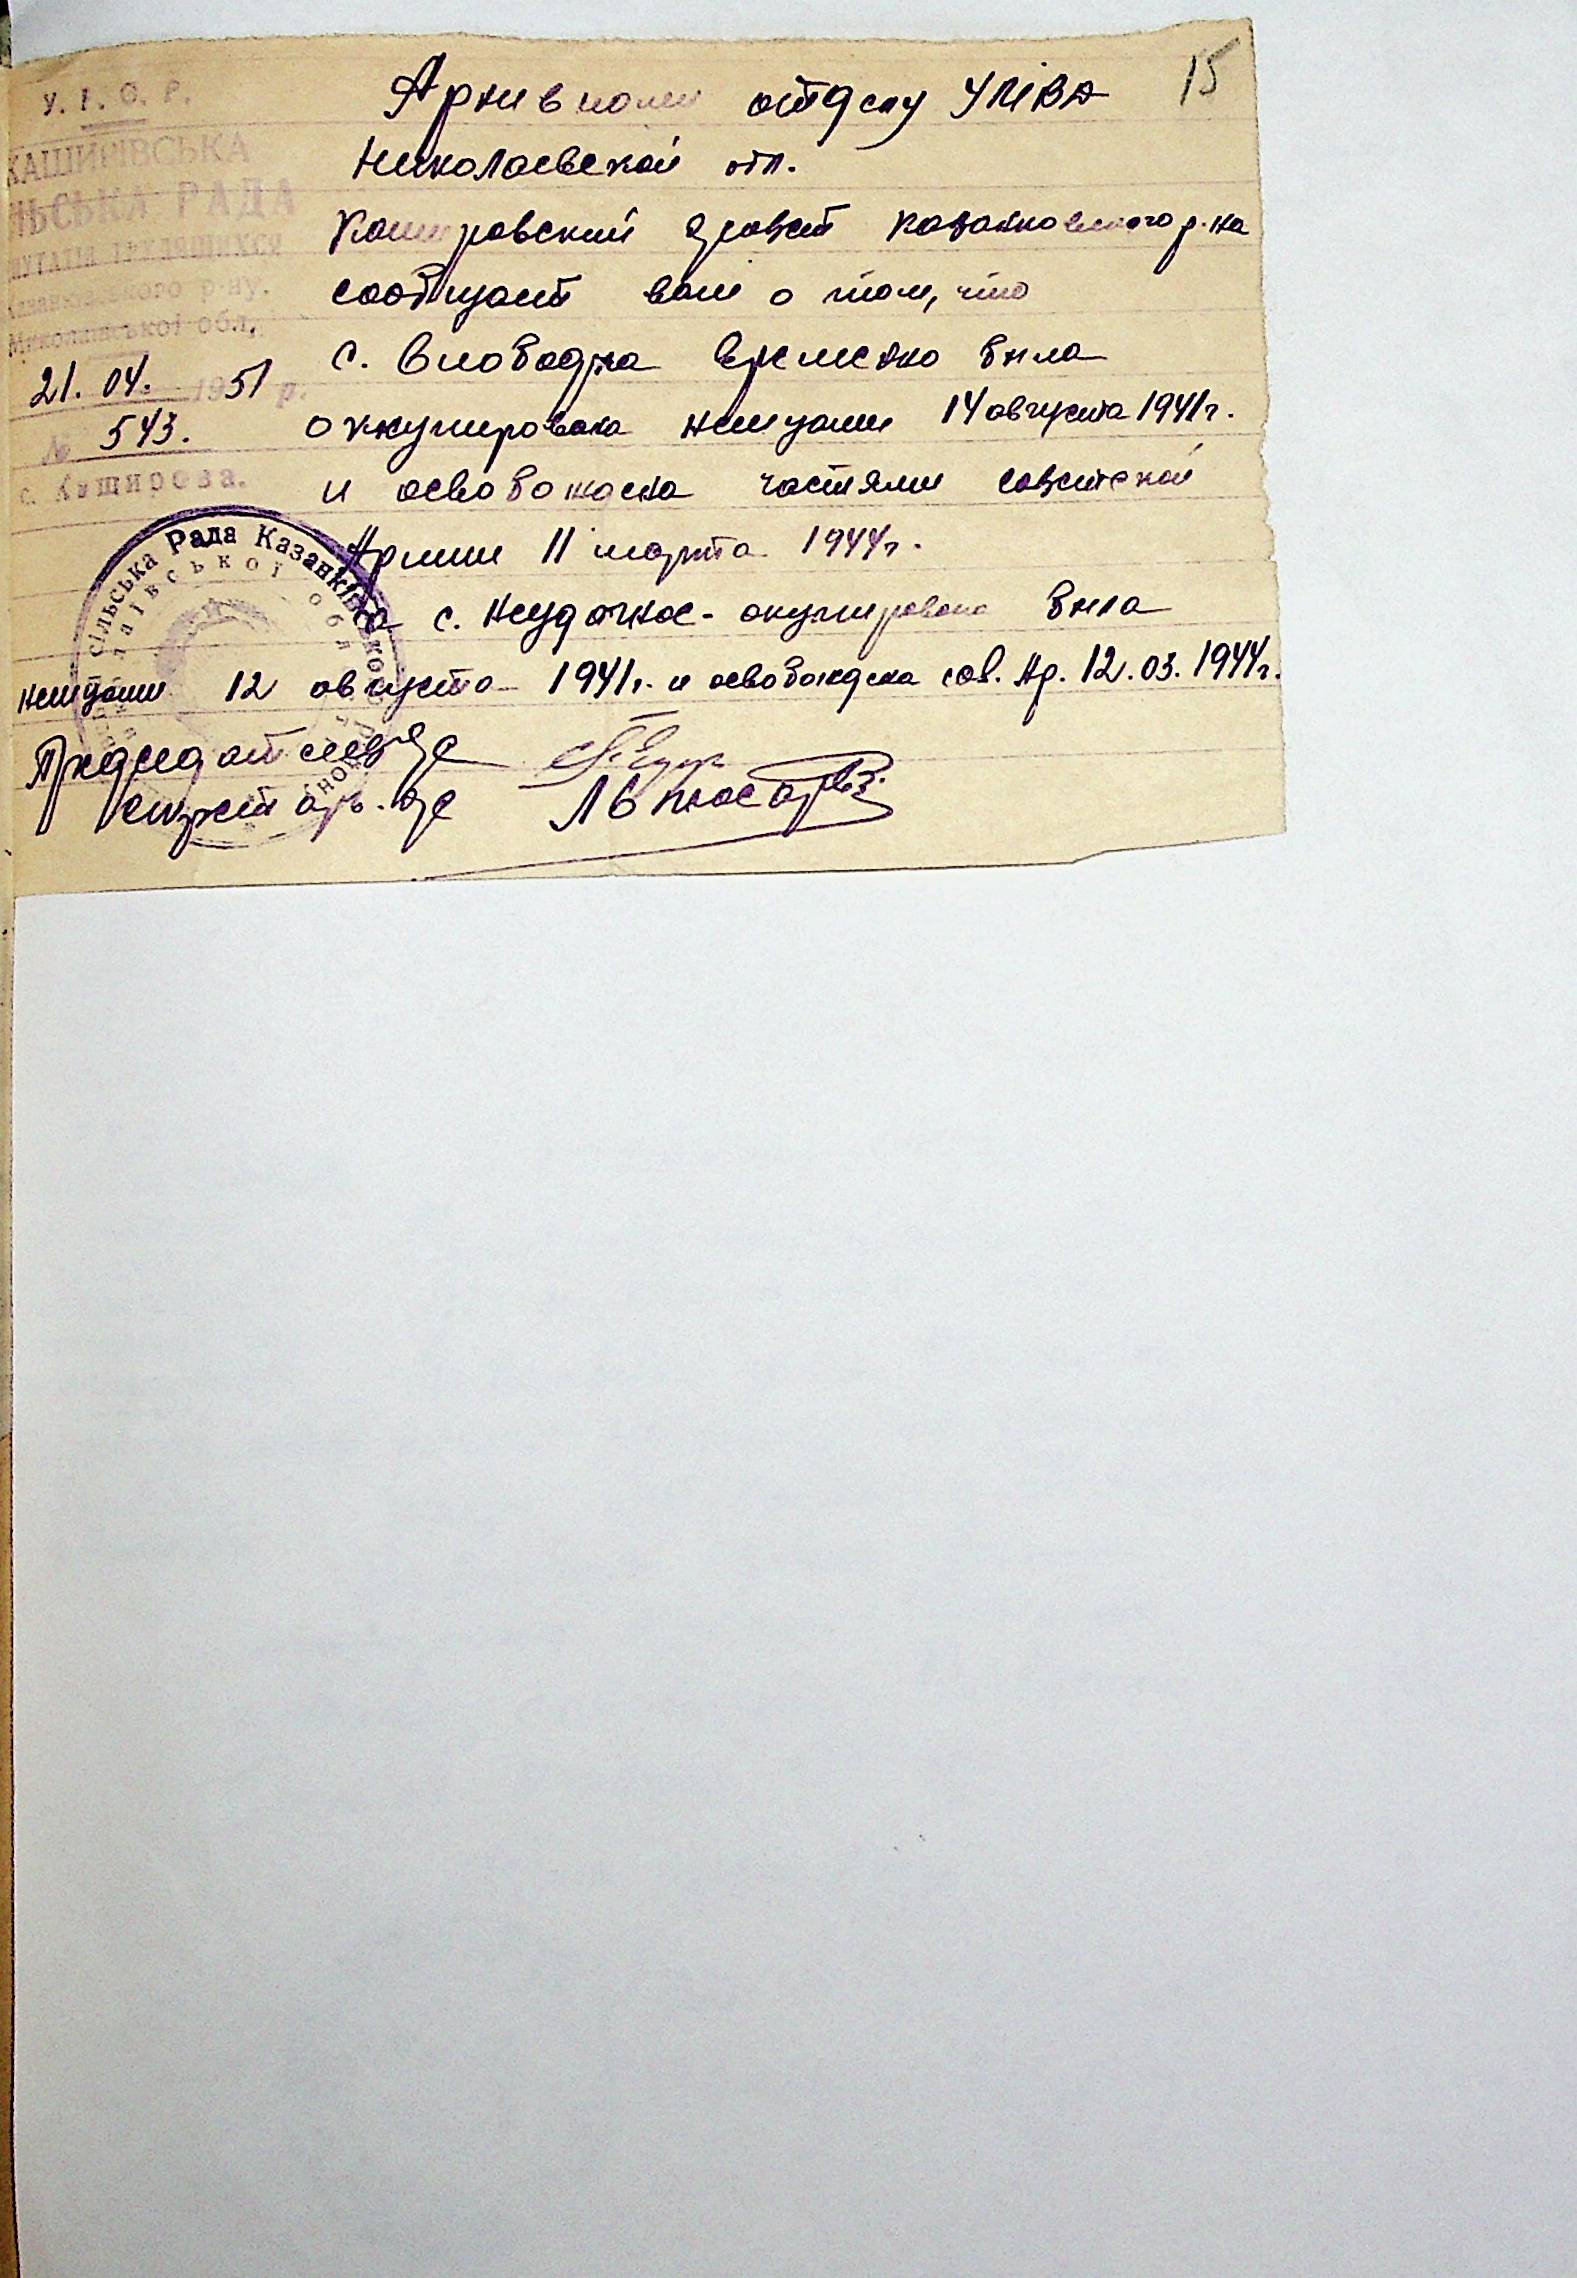 15
У. Р. С. Р.
КАШИРІВСЬКА
ЛЬСЬКА РАДА
ПУТАТІВ ТРУДЯЩИХСЯ
Казанківського р-ну.
Миколаївської обл.
21. 04. 1951 р.
№ 543.
с. Каширова.
Архивному отделу УМВД
Николаевской обл.
Кашировский с/совет казанковского р-на
сообщает вам о том, что
с. Слободка временно была
оккупирована немцами 14 августа 1941 г.
и освобождена частями советской
Армии 11 марта 1944 г.
а с. Неудачное - окупирована была
немцами 12 августа 1941 г. и освобождена сов. Ар. 12. 03. 1944 г.
Председатель с/с
Секретарь с/с
сільська Рада Казанківського